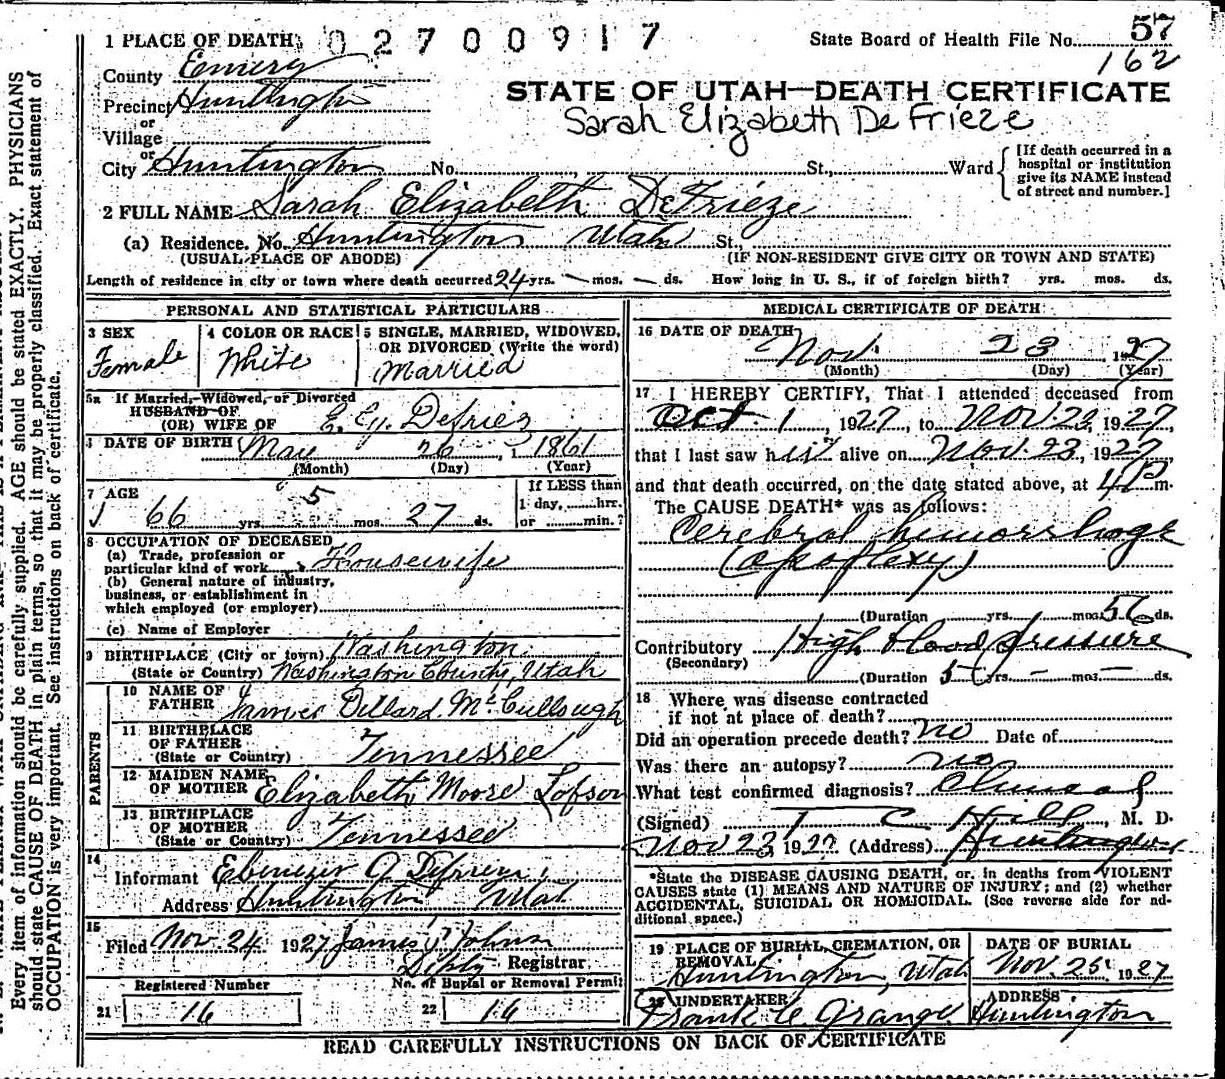 57
1 PLACE OF DEATH 02700917 State Board of Health File No.
162
County Emery
STATE OF UTAH—DEATH CERTIFICATE
Precinct Huntington
or
Sarah Elizabeth DeFrieze
Village
or
City Huntington No. St., Ward
[If death occurred in a
hospital or institution
give its NAME instead
of street and number.]
2 FULL NAME Sarah Elizabeth DeFrieze
(a) Residence. No. Huntington Utah St.,
(USUAL PLACE OF ABODE) (IF NON-RESIDENT GIVE CITY OR TOWN AND STATE)
Length of residence in city or town where death occurred 24 yrs. — mos. — ds. How long in U. S., if of foreign birth? yrs. mos. ds.
PERSONAL AND STATISTICAL PARTICULARS
3 SEX
Female
4 COLOR OR RACE
White
5 SINGLE, MARRIED, WIDOWED,
OR DIVORCED (Write the word)
Married
5a If Married, Widowed, or Divorced
HUSBAND OF
(OR) WIFE OF
DATE OF BIRTH May 26, 1861
(Month) (Day) (Year)
7 AGE
66 yrs. 5 mos. 27 ds.
If LESS than
1 day, hrs.
or min.?
8 OCCUPATION OF DECEASED
(a) Trade, profession or
particular kind of work Housewife
(b) General nature of industry,
business, or establishment in
which employed (or employer)
(c) Name of Employer
9 BIRTHPLACE (City or town) Washington
(State or Country) Washington County, Utah
PARENTS
10 NAME OF
FATHER James Dillard McCullough
11 BIRTHPLACE
OF FATHER
(State or Country) Tennessee
12 MAIDEN NAME
OF MOTHER Elizabeth Moore Lofson
13 BIRTHPLACE
OF MOTHER
(State or Country) Tennessee
14
Informant Ebenezer
Address Huntington Utah
15
Filed Nov. 24 1927 James P. Johnson
Registrar
Registered Number
No. of Burial or Removal Permit
21 16
22 16
MEDICAL CERTIFICATE OF DEATH
16 DATE OF DEATH
Nov. 23 1927
(Month) (Day) (Year)
17 I HEREBY CERTIFY, That I attended deceased from
Oct 1, 1927, to Nov. 23, 1927,
that I last saw her alive on Nov. 23, 1927,
and that death occurred, on the date stated above, at 4 P m.
The CAUSE DEATH* was as follows:
Cerebral hemorrhage
(apoplexy)
(Duration yrs. mos. 56 ds.
Contributory High blood pressure
(Secondary)
(Duration 5 yrs. — mos. — ds.
18 Where was disease contracted
if not at place of death?
Did an operation precede death? no Date of
Was there an autopsy? no
What test confirmed diagnosis? Clinical
(Signed) T C Hill, M. D.
Nov 23, 1927 (Address) Huntington
*State the DISEASE CAUSING DEATH, or, in deaths from VIOLENT
CAUSES state (1) MEANS AND NATURE OF INJURY; and (2) whether
ACCIDENTAL, SUICIDAL OR HOMICIDAL. (See reverse side for ad-
ditional space.)
19 PLACE OF BURIAL, CREMATION, OR
REMOVAL
Huntington, Utah
DATE OF BURIAL
Nov. 25, 1927
20 UNDERTAKER
Frank C. Grange
ADDRESS
Huntington
READ CAREFULLY INSTRUCTIONS ON BACK OF CERTIFICATE
Every item of information should be carefully supplied. AGE should be stated EXACTLY. PHYSICIANS
should state CAUSE OF DEATH in plain terms, so that it may be properly classified. Exact statement of
OCCUPATION is very important. See instructions on back of certificate.